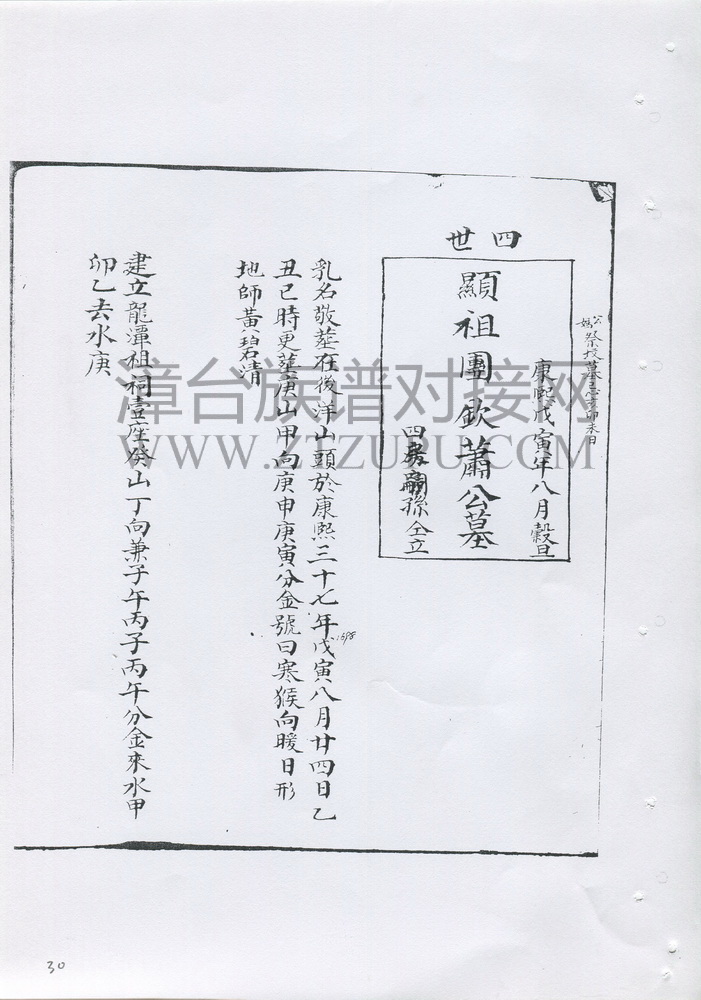 四世
康熙戊寅年八月穀旦
顯祖團欽蕭公墓
四房嗣孫仝立
乳名敬葬在後洋山頭於康熙三十七年戊寅八月廿四日乙
1698
丑巳時更葬庚山甲向庚申庚寅分金號曰寒猴向暖日形
地師黃碧清
建立龍潭祖祠壹座癸山丁向兼子午丙子丙午分金來水甲
卯乙去水庚
漳台族谱对接网
WWW.ZTZUPU.COM
30